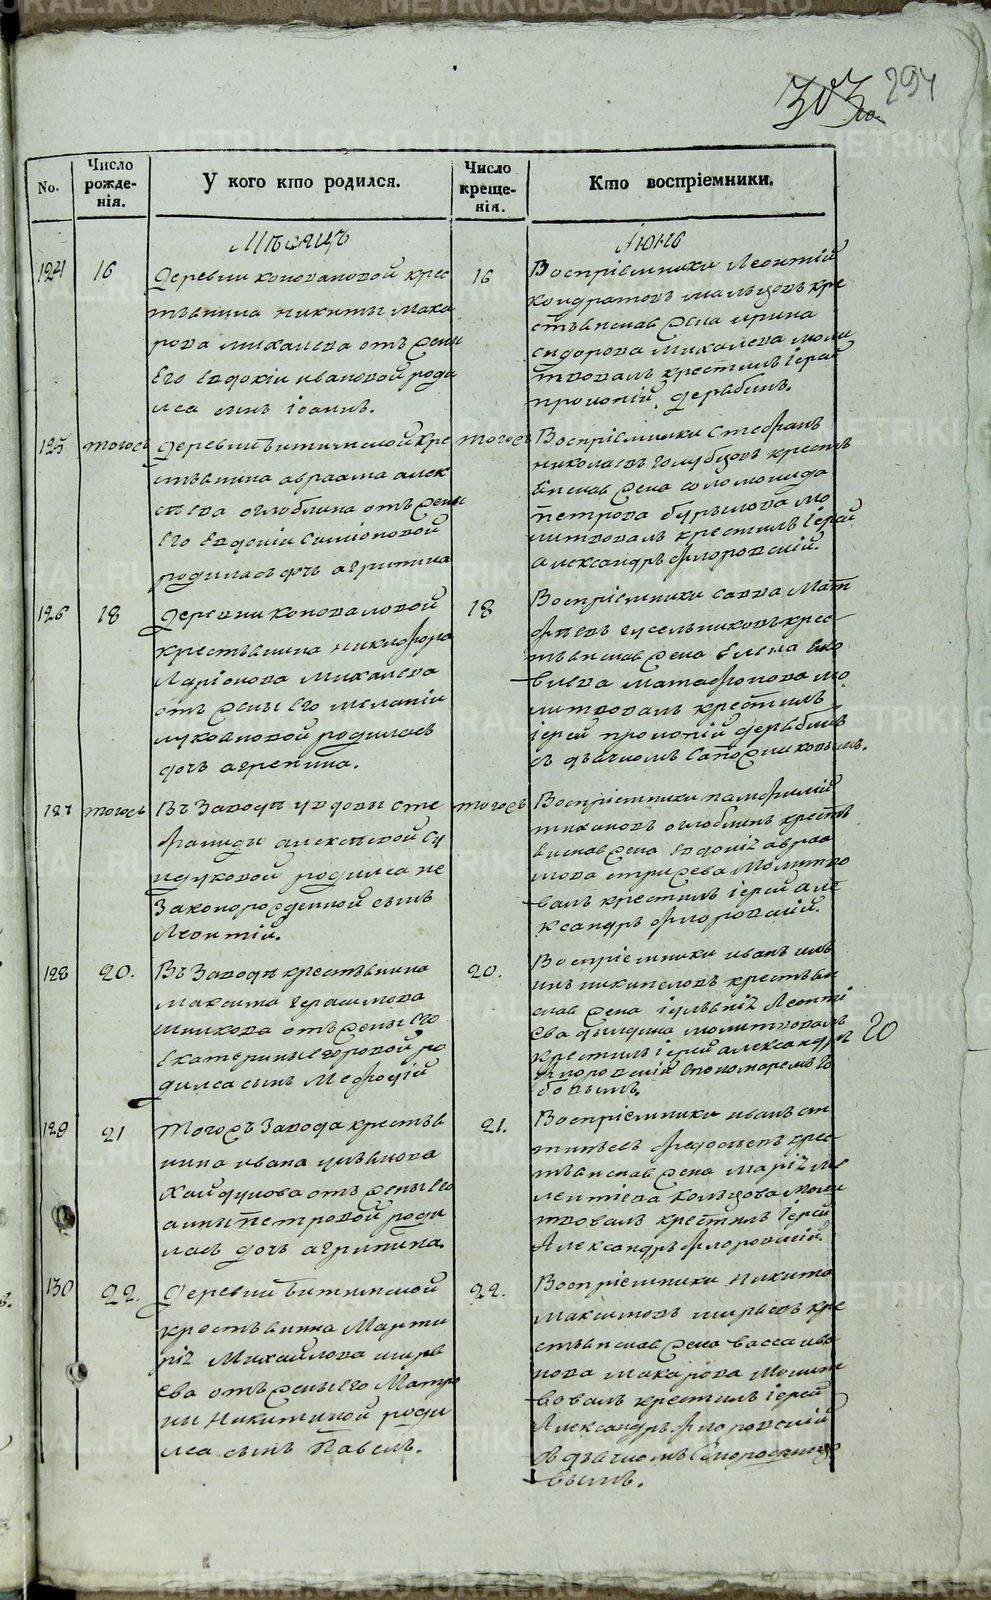 303
294
No.
Число рожде-нія.
У кого кто родился.
Число креще-нія.
Кто воспріемники.
Мѣсяцъ
Іюнь
124
16
деревни коноваловой крес
тьянина никиты мака
рова михалева отъ жены
его евдокіи ивановой роди
лса сынъ іоаннъ.
16
Воспріемники Леонтій
кондратовъ мальцовъ кре
стьянскаѧ жена ирина
сидорова михалева моли
твовалъ крестилъ іерей
прокопій дерябинъ.
125
тогожъ
деревни битимской кре
стьянина авраама алек
сѣева оглоблина отъ жены
его Евдокіи Симіоновой
родилась дочь агрипина
тогожъ
Воспріемники Стефанъ
николаевъ голубцовъ крестьѧ
нскаѧ жена соломонида
петрова бурылова мо
литвовалъ крестилъ іерей
александръ флоровскій.
126
18
деревни Коноваловой
крестьянина никифора
Ларіонова михалева
отъ жены его меланіи
лукояновой родилась
дочь агрепина.
18
Воспріемники савва Мат
фѣевъ гусельниковъ крес-
тьѧнскаѧ жена Елена
матафонова мо
литвовалъ крестилъ
іерей прокопій дерябинъ
съ дьячкомъ Сапожниковымъ.
127
тогожъ
Въ Заводѣ у вдовы сте
фаниды алексѣевой Су
ндуковой родился не
Законорожденной сынъ
Леонтій.
тогожъ
Воспріемники памфилій
тихановъ оглоблинъ крестьѧ
нскаѧ жена евдокіѧ авраа
мова стрижева Молитво
валъ крестилъ іерей але
ксандръ флоровскій.
128
20.
Въ Заводѣ крестьянина
максима герасимова
шишкова отъ жены его
Екатерины егоровой ро
дилса сынъ Меѳодій
20.
Воспріемники иванъ иль
инъ никипеловъ крестьѧн
скаѧ жена іульяніѧ Леонті
ева молитвовалъ
крестилъ іерей александръ
флоровскій спономаремъ Бо
бовымъ.
20
129
21
Тогожъ Завода крестьѧ
нина ивана ульянова
Хайдукова отъ жены его
анны петровой роди
лась дочь агрипина.
21.
Воспріемники иванъ
крес-
тьѧнскаѧ жена маріѧ ме
лентіева Кольцова моли
твовалъ крестилъ іерей
Александръ флоровскій.
130
22.
Деревни Битимской
крестьянина Марти
ніѧ Михайлова ширѧ
ева отъ жены его Матро
ны Никитиной роди
лса сынъ Павелъ.
22.
Воспріемники Никита
максимовъ ширяевъ кре
стьѧнскаѧ жена васса ива
нова макарова Молит
вовалъ крестилъ іерей
Александръ флоровскій
съ дьячкомъ Смородинцо
вымъ.
METRIKI.GASO-URAL.RU